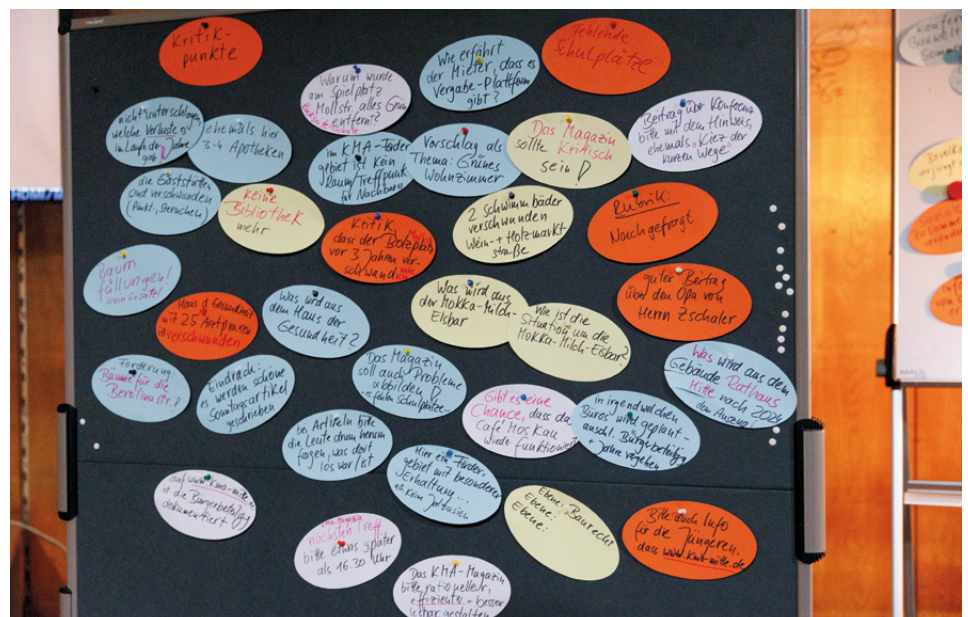 Kritik-
punkte
Warum wurde
am Spielplatz
Mollstr. alles Grün
entfernt?
Wie erfährt
der Mieter, dass es
Vergabe-Plattform
gibt?
Fehlende
Schulplätze
nicht unterschlagen,
welche Verluste es
im Laufe der Jahre
gab!
ehemals hier
3-4 Apotheken
im KMA-Förder
gebiet ist kein
Raum/Treffpunkt
für Nachbarn
Vorschlag als
Thema: Grünes
Wohnzimmer
Das Magazin
sollte Kritisch
sein!
Beitrag über Konferenz
bitte mit dem Hinweis,
ehemals "Kiez der
kurzen Wege"
die Gaststätten
sind verschwunden
keine
Bibliothek
mehr
Kritik,
dass der Bolzplatz
vor 3 Jahren ver-
schwand
2 Schwimmbäder
verschwunden
Wein- + Holzmarkt
straße
Rubrik:
Nachgefragt
Baum
fällungen!
Haus d. Gesundheit
mit 25 Arztpraxen
verschwunden
Was wird aus
dem Haus der
Gesundheit?
Was wird aus
der Mokka-Milch-
Eisbar
Wie ist die
Situation um die
Mokka-Milch-Eisbar?
guter Beitrag
über den Opa von
Herrn Zschaler
Forderung
Bäume für die
Berolinastr.!
Eindruck:
es werden schöne
Sonntagsartikel
geschrieben
Das Magazin
soll auch Probleme
abbilden!
fehlen Schulplätze
Gibt es eine
Chance, dass das
Café Moskau
wieder funktioniert
in irgendwelchen
Büros wird geplant-
anschl. Bürgerbeteilig
+ Jahre vergehen
Was wird aus dem
Gebäude Rathaus
Mitte nach 2024
dem Auszug?
bei Artikeln bitte
die Leute drum herum
fragen, was dort
los war/ist
Hier ein Förder,
gebiet mit besonderer
Erhaltung...
auf www.kma-mitte.de
ist die Bürgerbeteilig
dokumentiert
KMA-Magazin
nächsten Treff
bitte etwas später
als 16.30 Uhr
Ebene: Baurecht
Ebene:
Ebene:
Bitte auch Info
für die Jüngeren,
dass www.kma-mitte.de
Das KMA-Magazin
bitte rationeller,
effizienter + besser
lesbar gestalten